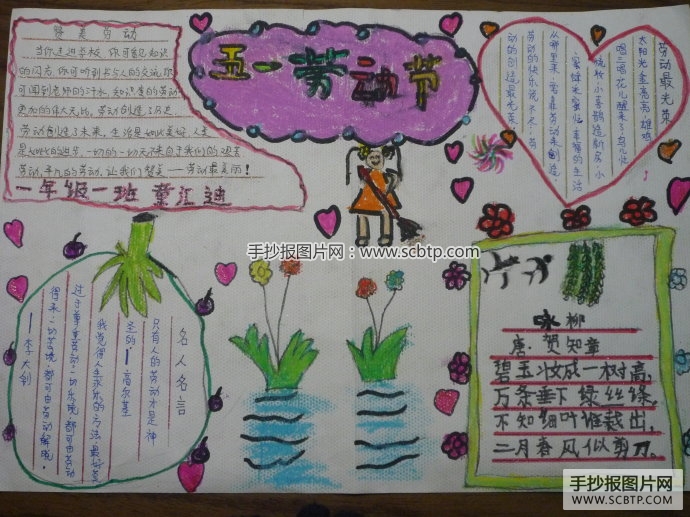 五一劳动节
赞美劳动
当你走进学校,你可看见知识
的闪光,你可听到书与人的交流,你
可闻到老师的汗水,知识是的劳动
更加的伟大无比。劳动创造了历史
劳动创造了未来,生活是如此美好,人生
是如此的进步,一切的一切无不来自于我们的艰苦
劳动,平凡的劳动,让我们赞美——劳动最美丽!
一年级一班 董汇迪
劳动最光荣
太阳光金亮亮,雄鸡
唱三唱花儿醒来了鸟儿忙
梳妆小喜鹊造新房,小
蜜蜂采蜜忙幸福的生活
从哪里来,要靠劳动来创造,
劳动的快乐说不尽,劳
动的创造最光荣
手抄报图片网:www.scbtp.com
名人名言
只有人的劳动才是神
圣的——高尔基
我觉得人生求乐的方法,最好莫
过于尊重劳动,一切乐境,都可由劳动
得来,一切苦境,都可由劳动解脱。
——李大钊
咏柳
唐:贺知章
碧玉妆成一树高,
万条垂下绿丝绦,
不知细叶谁裁出,
二月春风似剪刀。
手抄报图片网
WWW.SCBTP.COM